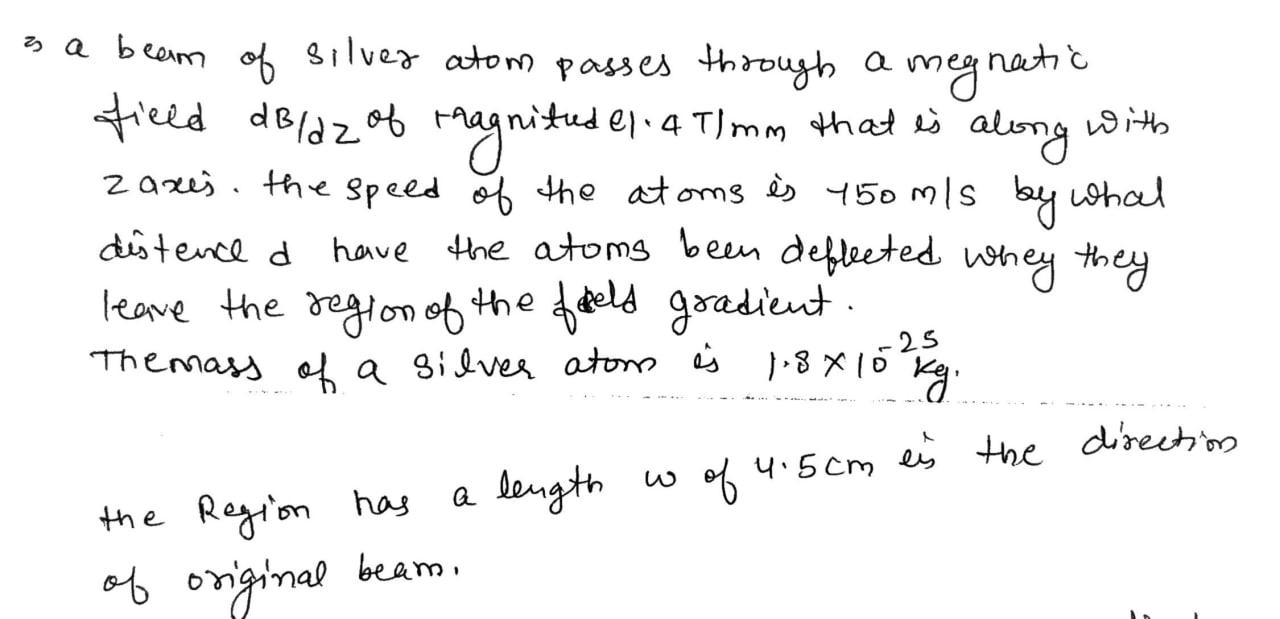 a beam of silver atom passes through a megnatic
field dB/dz of magnitude 1.4 T/mm that is along with
z axis. the speed of the atoms is 750 m/s by what
distence d have the atoms been deflected whey they
leave the region of the field gradient.
The mass of a silver atom is 1.8 × 10^-25 kg.
the Region has a length w of 4.5 cm is the direction
of original beam.